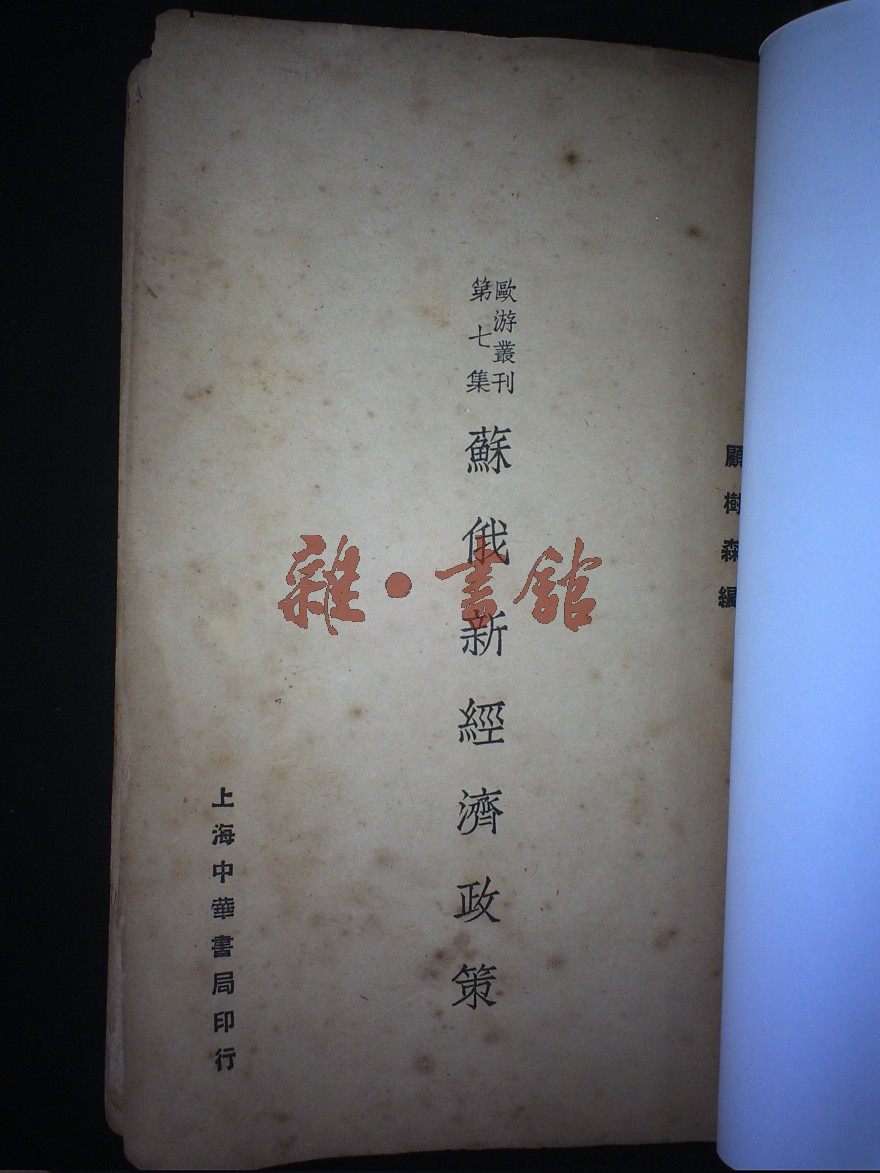 顧樹森編
歐游叢刊
第七集
蘇俄新經濟政策
上海中華書局印行
雜·書館